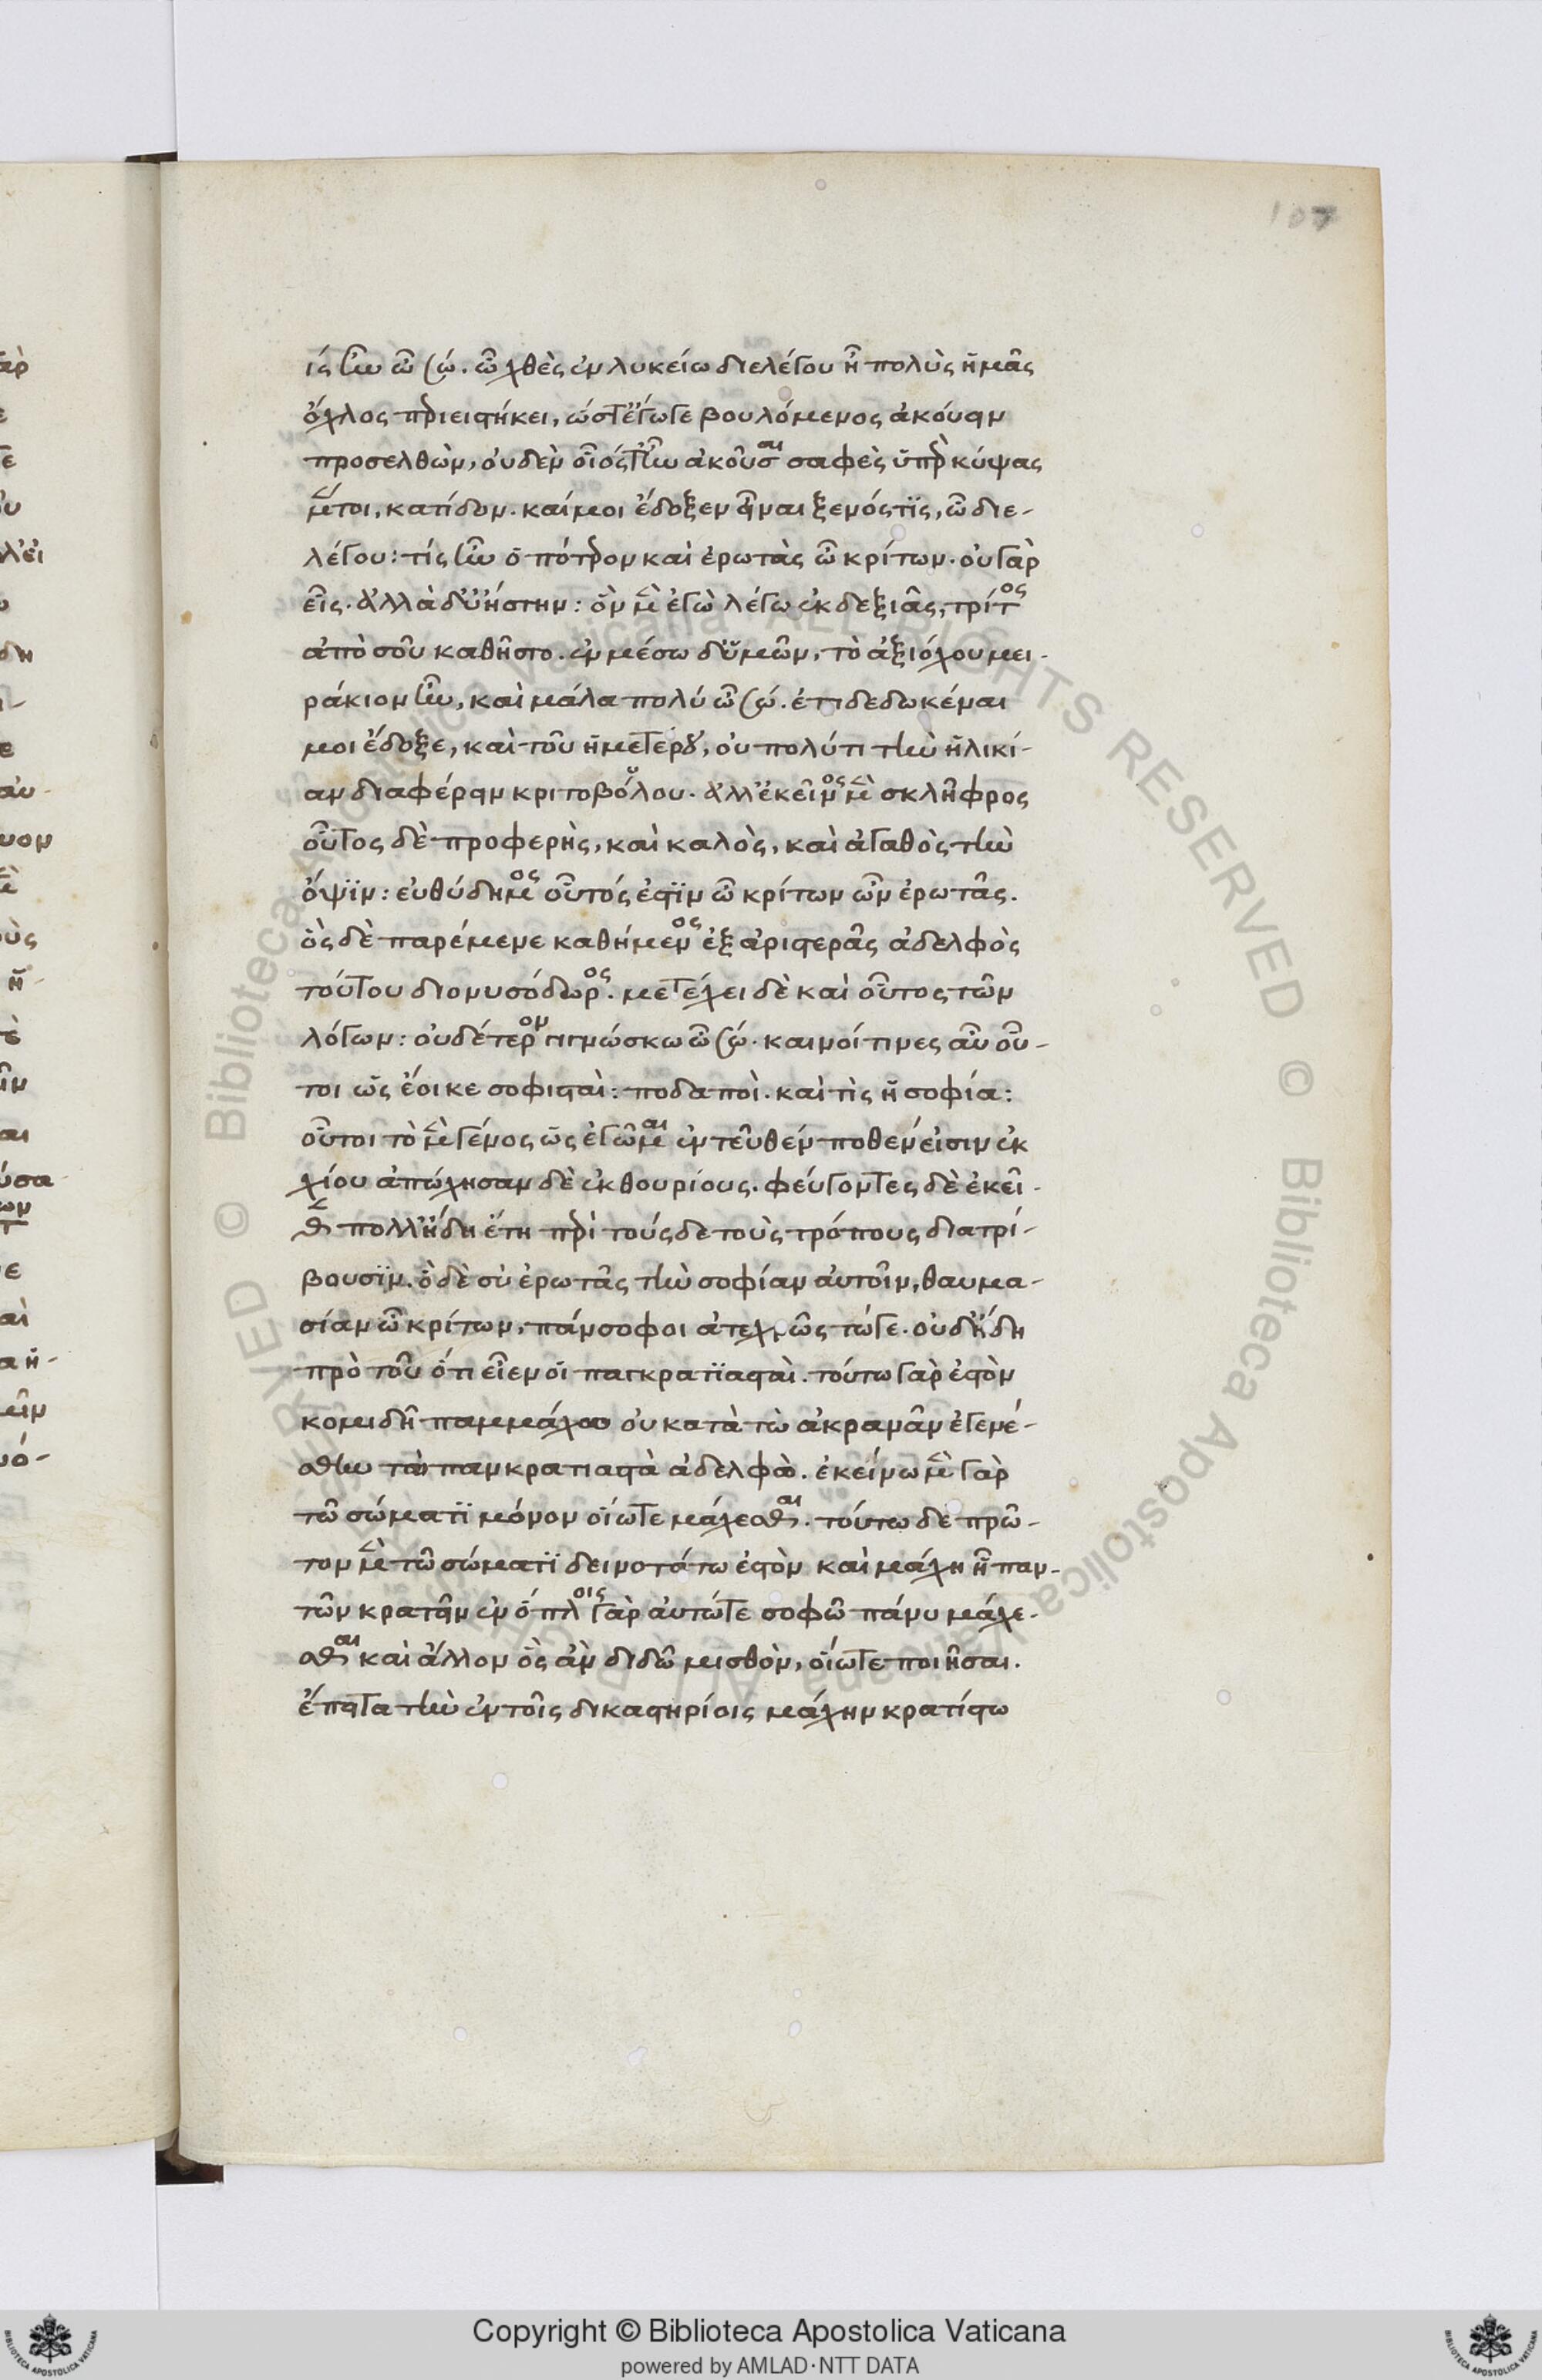 107
ίς ἦν ὦ σώ. ὧ χθὲς ἐν λυκείω διελέγου ἦ πολὺς ἡμᾶς
ὄχλος περιειστήκει, ὥστ' ἔγωγε βουλόμενος ἀκούειν
προσελθὼν, οὐδὲν οἷός τ' ἦν ἀκοῦσαι σαφὲς ὑπερκύψας
μέντοι, κατίδον. καί μοι ἔδοξεν εἶναι ξενός τϊς, ὧ διε-
λέγου: τίς ἦν ὁ πότερον καὶ ἐρωτὰς ὦ κρίτων. οὐ γὰρ
εἷς. ἀλλὰ δύ' ἤστην: ὃν μὲν ἐγὼ λέγω ἐκ δεξιᾶς, τρίτος
ἀπὸ σοῦ καθῆστο. ἐν μέσω δ' ὑμῶν, τὸ ἀξιόχου μει-
ράκιον ἦν, καὶ μάλα πολύ ὦ σώ. ἐπιδεδωκέναι
μοι ἔδοξε, καὶ τοῦ ἡμετέρου, οὐ πολύ τι τὴν ἡλικί-
αν διαφέρειν κριτοβούλου. ἀλλ' ἐκεῖνος μὲν σκληφρος
οὗτος δὲ προφερὴς, καὶ καλὸς, καὶ ἀγαθὸς τὴν
ὄψϊν: εὐθύδημος οὗτός ἐστϊν ὦ κρίτων ὧν ἐρωτᾶς.
ὃς δὲ παρέμενε καθήμενος ἐξ ἀριστερᾶς ἀδελφὸς
τούτου διονυσόδωρος. μετέχει δὲ καὶ οὗτος τῶν
λόγων: οὐδέτερον γιγνώσκω ὦ σώ. καινοί τινες αὖ οὗ-
τοι ὡς ἔοικε σοφισταὶ: ποδαποὶ. καὶ τὶς ἡ σοφία:
οὗτοι τὸ μὲν γένος ὡς ἐγῶμαι ἐντεῦθέν ποθεν εἰσιν ἐκ
χίου ἀπώχησαν δὲ ἐκ θουρίους. φεύγοντες δὲ ἐκεῖ-
θεν πολλ' ἤδη ἔτη περὶ τούς δε τοὺς τρόπους διατρί-
βουσϊν. ὃ δὲ σὺ ἐρωτᾶς τὴν σοφίαν αὐτοῖν, θαυμα-
σίαν ὦ κρίτων, πάνσοφοι ἀτεχνῶς τώγε. οὐδ' ἤδη
πρὸ τοῦ ὅτι εἶεν οἱ παγκρατϊασταὶ. τούτω γὰρ ἐστὸν
κομιδῆ παμμάχω οὐ κατὰ τὼ ἀκραμᾶν ἐγενέ-
σθην τὼ παγκρατιαστὰ ἀδελφὼ. ἐκείνω μὲν γὰρ
τῶ σώματϊ μόνον οἵωτε μάχεσθαι. τούτω δὲ πρῶ-
τον μὲν τῶ σώματϊ δεινοτάτω ἐστὸν καὶ μάχη ἧ παν-
τῶν κρατεῖν ἐν ὅπλοις γὰρ αὐτώτε σοφῶ πάνυ μάχε-
σθαι καὶ ἄλλον ὃς ἂν διδῶ μισθὸν, οἵωτε ποιῆσαι.
ἔπειτα τὴν ἐν τοῖς δικαστηρίοις μάχην κρατίστω
Copyright © Biblioteca Apostolica Vaticana
powered by AMLAD·NTT DATA